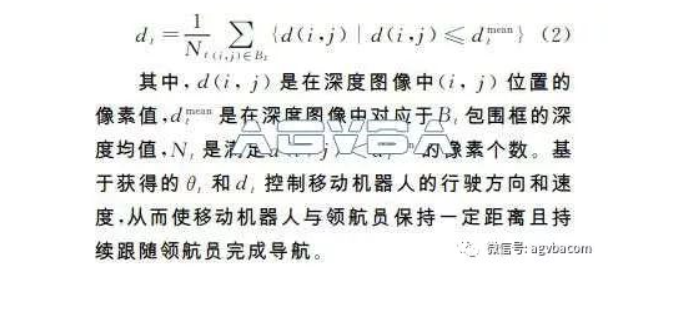 d_t = 1/N_t ∑_{(i,j)∈B_t} {d(i,j) | d(i,j) ≤ d_t^mean} (2)
其中,d(i,j)是在深度图像中(i,j)位置的
像素值,d_t^mean 是在深度图像中对应于B_t 包围框的深
AGVBA
度均值,N_t 是满足d(i,j)≤d_t^mean 的像素个数。基
于获得的 θ_t 和 d_t 控制移动机器人的行驶方向和速
度,从而使移动机器人与领航员保持一定距离且持
续跟随领航员完成导航。
微信号: agvbacom